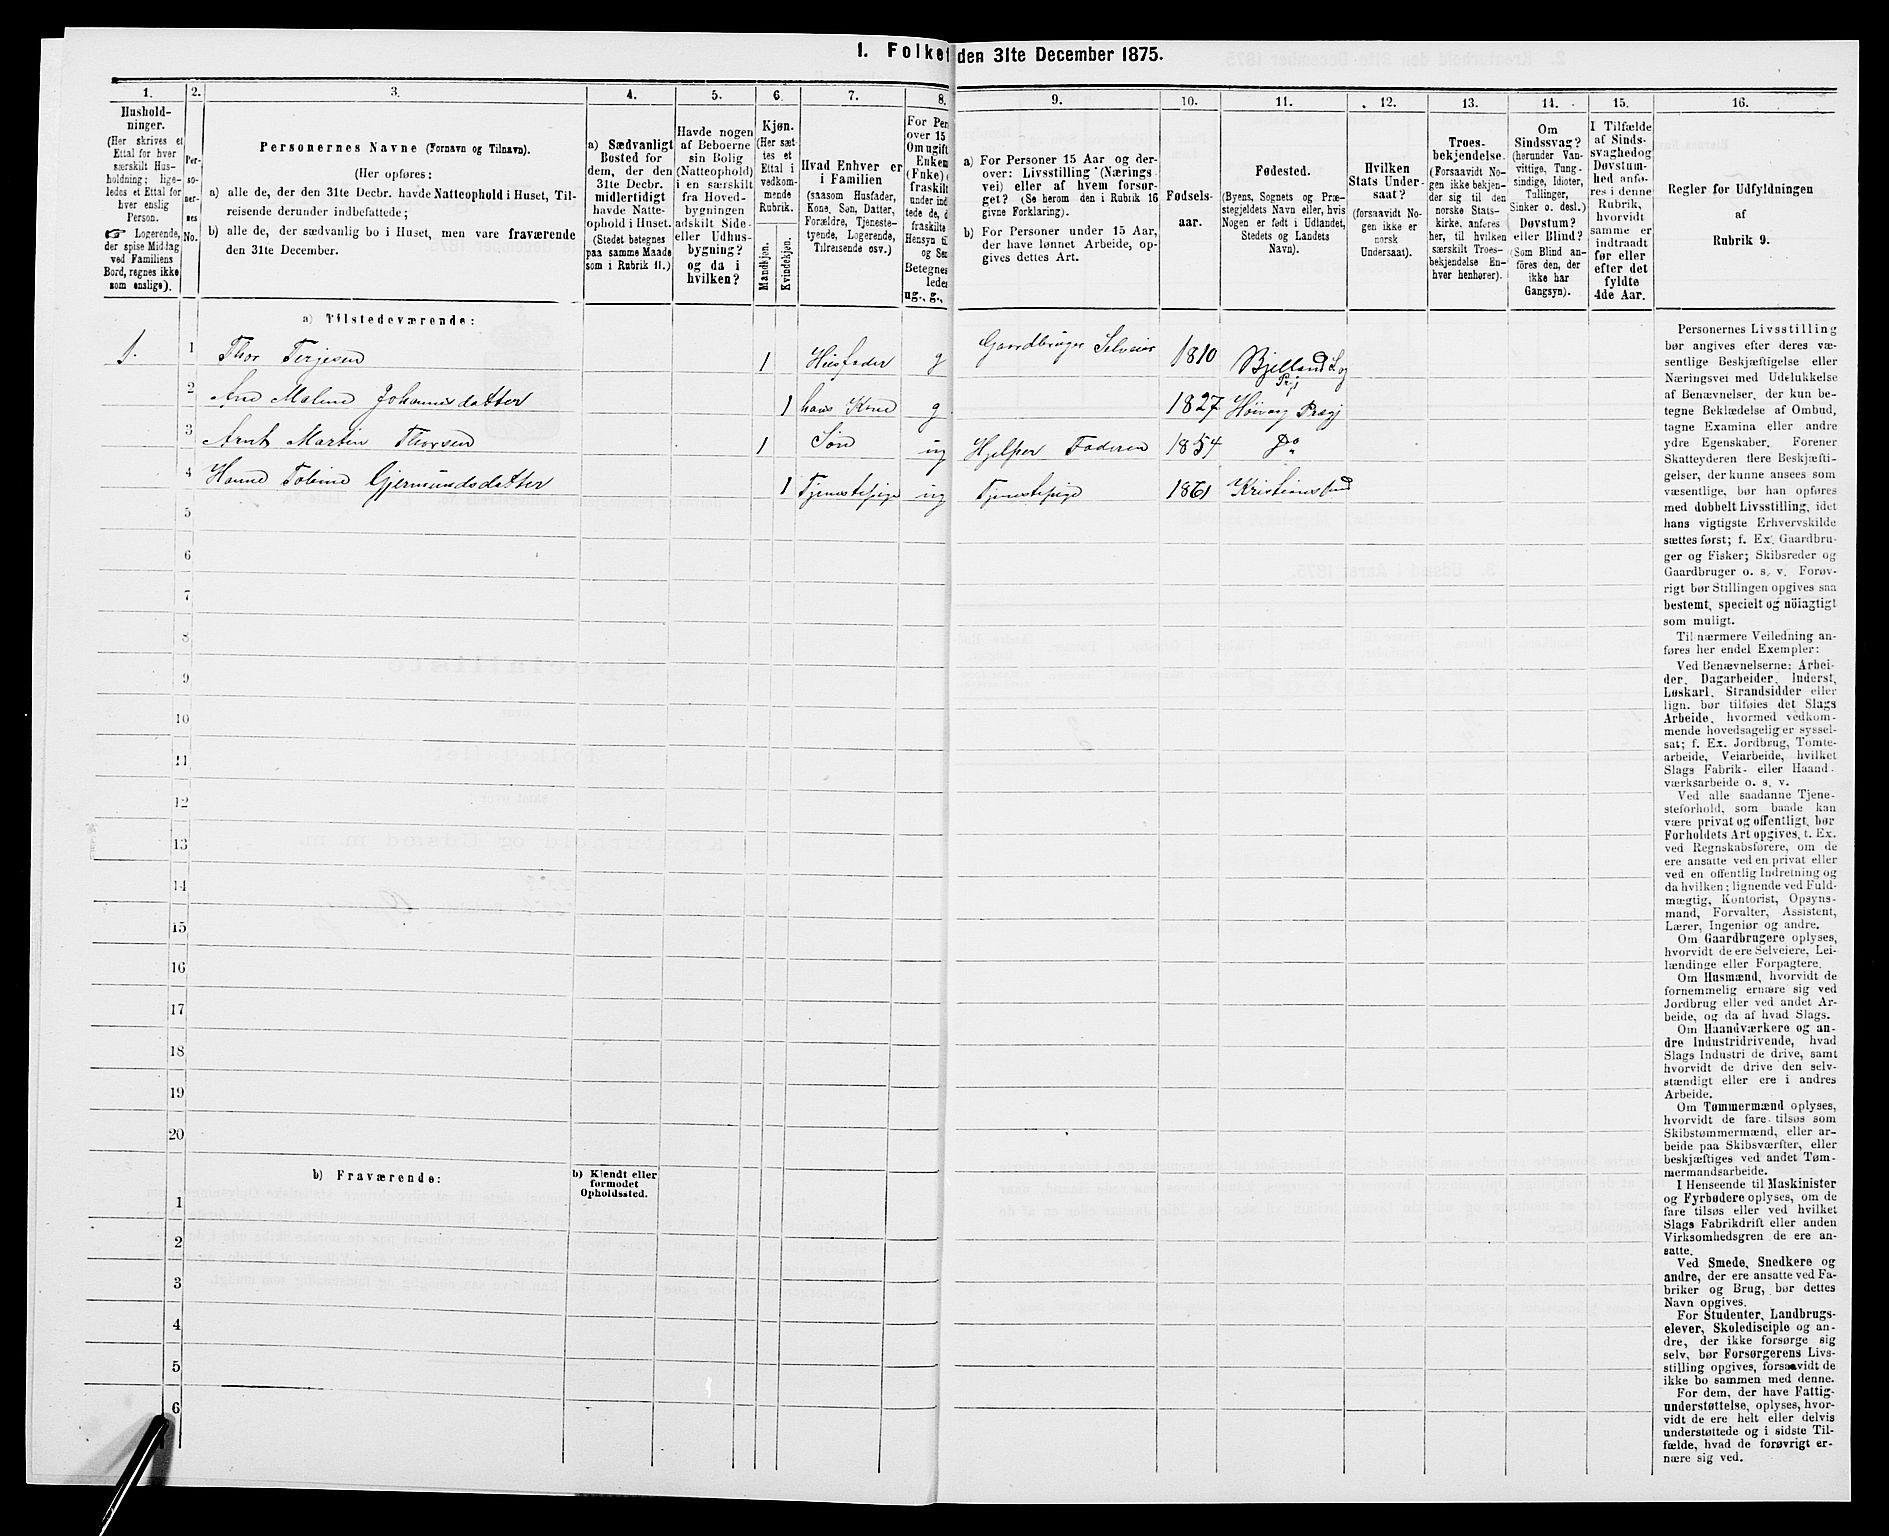 1. Folket den 31te December 1875.
1.
Hushold-
ninger.
(Her skrives et
Ettal for hver
særskilt Hus-
holdning; lige-
ledes et Ettal for
hver enslig
Person.
☞ Logerende,
der spise Middag
ved Familiens
Bord, regnes ikke
som enslige).
2.
Per-
so-
ner-
nes
No.
3.
Personernes Navne (Fornavn og Tilnavn).
(Her opføres:
a) alle de, der den 31te Decbr. havde Natteophold i Huset, Til-
reisende derunder indbefattede;
b) alle de, der sædvanlig bo i Huset, men vare fraværende
den 31te December.
4.
a) Sædvanligt
Bosted for
dem, der den
31te Decbr.
midlertidigt
havde Natte-
ophold i Huset.
(Stedet betegnes
paa samme Maade
som i Rubrik 11.)
5.
Havde nogen
af Beboerne
sin Bolig
(Natteophold)
i en særskilt
fra Hoved-
bygningen
adskilt Side-
eller Udhus-
bygning?
og da i
hvilken?
6.
Kjøn.
(Her sæt-
tes et
Ettal i
vedkom-
mende
Rubrik.
Mandkjøn.
Kvindekjøn.
7.
Hvad Enhver er
i Familien
(saasom Husfader,
Kone, Søn, Datter,
Forældre, Tjeneste-
tyende, Logerende,
Tilreisende osv.)
8.
For Per
over 15
Om ugift
Enkem
(Fnke)
fraskilt
under ind
tede de, d
fraskilte
Hensyn til
og Se
Betegnes
lede
ug., g.,
9.
a) For Personer 15 Aar og der-
over: Livsstilling (Nærings-
vei) eller af hvem forsør-
get? (Se herom den i Rubrik 16
givne Forklaring).
b) For Personer under 15 Aar,
der have lønnet Arbeide, op-
gives dettes Art.
10.
Fødsels-
aar.
11.
Fødested.
(Byens, Sognets og Præ-
stegjeldets Navn eller, hvis
Nogen er født i Udlandet,
Stedets og Landets
Navn).
12.
Hvilken
Stats Under-
saat?
(forsaavidt No-
gen ikke er
norsk
Undersaat).
13.
Troes-
bekjendelse.
(Forsaavidt No-
gen ikke bekjen-
der sig til den
norske Stats-
kirke, anføres
her, til hvilken
særskilt Troes-
bekjendelse En-
hver henhører).
14.
Om
Sindssvag?
(herunder Van-
vittige, Tung-
sindige, Idioter,
Tullinger,
Sinker o. desl.)
Døvstum?
eller Blind?
(Som Blind an-
føres den, der
ikke har
Gangsyn).
15.
I Tilfælde
af Sinds-
svaghed og
Døvstum-
hed anfø-
res i denne
Rubrik,
hvorvidt
samme er
indtraadt
før eller
efter det
fyldte
4de Aar.
16.
Regler for Udfyldningen
af
Rubrik 9.
a) Tilstedeværende:
1. 1 Thor Terjesen 1 Husfader g Gaardbruger Selveier 1810 Bjelland S. og
Prgj
2 Ane Malene Johannesdatter 1 hans Kone g 1827 Høivag Prægj
3 Arnt Martin Thorsen 1 Søn ug Hjelper Faderen 1854 Do
4 Hanne Tobine Gjermundsdatter 1 Tjenestepige ug Tjenestepige 1861 Kristianssund
5
6
7
8
9
10
11
12
13
14
15
16
17
18
19
20
b) Fraværende:
b) Kjendt eller
formodet
Opholdssted.
1
2
3
4
5
6
Personernes Livsstilling
bør angives efter deres væ-
sentlige Beskjæftigelse eller
Næringsvei med Udelukkelse
af Benævnelser, der kun be-
tegne Beklædelse af Ombud,
tagne Examina eller andre
ydre Egenskaber. Forener
Skatteyderen flere Beskjæfti-
gelser, der kunne ansees som
væsentlige, bør han opføres
med dobbelt Livsstilling, idet
hans vigtigste Erhvervskilde
sættes først; f. Ex. Gaardbru-
ger og Fisker; Skibsreder og
Gaardbruger o. s. v. Forøv-
rigt bør Stillingen opgives saa
bestemt, specielt og nöiagtigt
som muligt.
Til nærmere Veiledning an-
føres her endel Exempler:
Ved Benævnelserne: Arbei-
der, Dagarbeider, Inderst,
Løskarl, Strandsidder eller
lign. bør tilføies det Slags
Arbeide, hvormed vedkom-
mende hovedsagelig er syssel-
sat; f. Ex. Jordbrug, Tomte-
arbeide, Veiarbeide, hvilket
Slags Fabrik- eller Haand-
værksarbeide o. s. v.
Ved alle saadanne Tjene-
steforhold, som baade kan
være privat og offentligt, bør
Forholdets Art opgives, t. Ex.
ved Regnskabsførere, om de
ere ansatte ved en privat eller
ved en offentlig Indretning og
da hvilken; lignende ved Fuld-
mægtig, Kontorist, Opsyns-
mand, Forvalter, Assistent,
Lærer, Ingeniør og andre.
Om Gaardbrugere oplyses,
hvorvidt de ere Selveiere, Lei-
lændinge eller Forpagtere.
Om Husmænd, hvorvidt de
fornemmelig ernære sig ved
Jordbrug eller ved andet Ar-
beide, og da af hvad Slags.
Om Haandværkere og an-
dre Industridrivende, hvad
Slags Industri de drive, samt
hvorvidt de drive den selv-
stændigt eller ere i andres
Arbeide.
Om Tømmermænd oplyses,
hvorvidt de fare tilsøs som
Skibstømmermænd, eller ar-
beide paa Skibsværfter, eller
beskjæftiges ved andet Tøm-
mermandsarbeide.
I Henseende til Maskinister
og Fyrbødere oplyses, om de
fare tilsøs eller ved hvilket
Slags Fabrikdrift eller anden
Virksomhedsgren de ere an-
satte.
Ved Smede, Snedkere og
andre, der ere ansatte ved Fa-
briker og Brug, bør dettes
Navn opgives.
For Studenter, Landbrugs-
elever, Skoledisciple og an-
dre, der ikke forsørge sig
selv, bør Forsørgerens Livs-
stilling opgives, forsaavidt de
ikke bo sammen med denne.
For dem, der have Fattig-
understøttelse, oplyses, hvor-
vidt de ere helt eller delvis
understøttede og i sidste Til-
fælde, hvad de forøvrigt er-
nære sig ved.